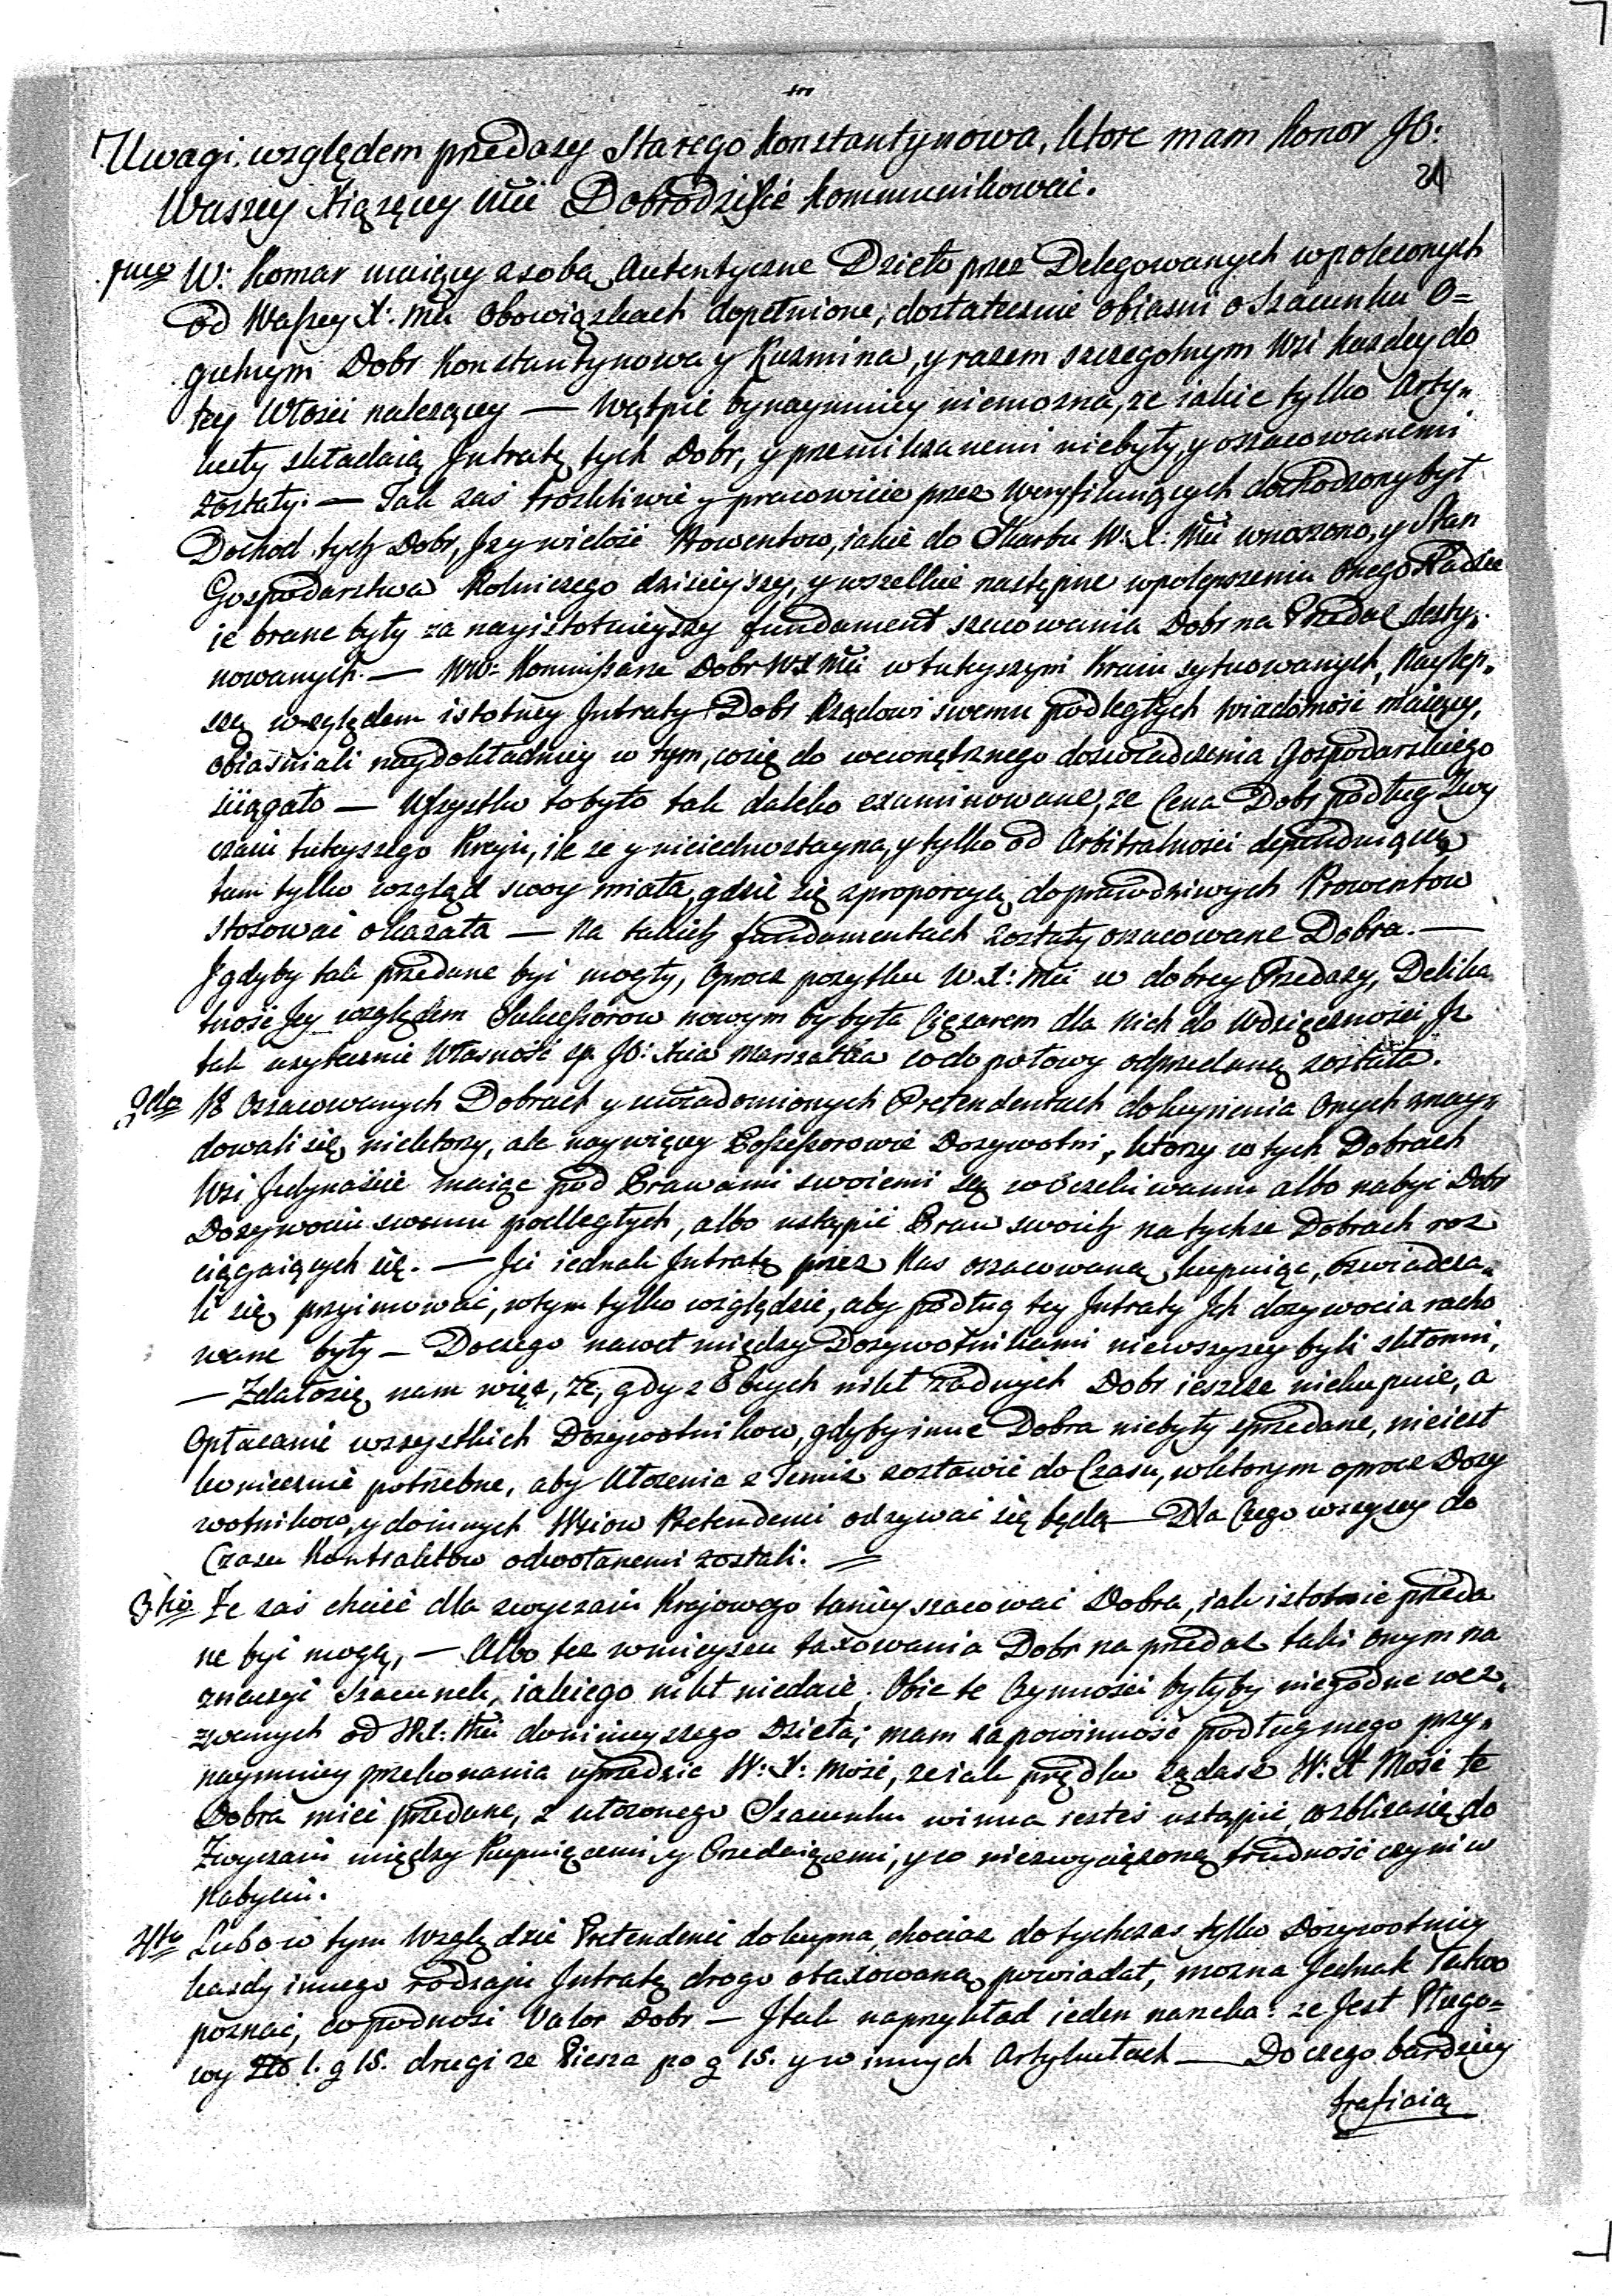 Uwagi względem przedaży Starego Konstantynowa, ktore mam honor JO:
Waszey Xiążęcey Mci Dobrodziyce kommunikować.
21
1mo W: Komar maiący z sobą Autentyczne Dzieło przez Delegowanych w poleconych
od Waszey X: Mci Obowiązkach dopełnione, dostatecznie obiasni o Szacunku O=
gulnym Dobr Konstantynowa y Kuzmina, y razem szczegolnym Wsi kazdey do
tey Włosci nalezącey — Wątpić bynaymniey niemozna, ze iakie tylko Arty„
kuły składaią Intratę tych Dobr, y przemilczanemi niebyły, y oszacowanemi
zostały. — Tak zaś troskliwie y pracowicie przez Weryfikuiących dochodzony był
Dochod tych Dobr, Jzy wielość Prowentow, iakie do Skarbu W: X: Mci wnoszono, y Stan
Gospodarstwa Rolniczego dzisieyszy, y wszelkie następne w polepszeniu onego Nadzie
ie brane były za nayistotnieyszy fundament szacowania Dobr na Przedaż desty„
nowanych. — WW: Kommissarze Dobr W X Mci w tuteyszym Kraiu sytuowanych, Naylep„
szą względem istotney Intraty Dobr Rządowi swemu podległych wiadomość maiący,
obiasniali naydokładniey w tym, co się do wewnętrznego doswiadczenia Gospodarskiego
sciągało — Wszystko to było tak daleko examinowane, ze Cena Dobr podług Zwy
czaiu tuteyszego Kraju, ile ze y nieiednostayna, y tylko od Arbitralnosci dependuiąca
tam tylko wzgląd swoy miała, gdzie się z proporcyą do prawdziwych Prowentow
stosować okazała — Na takich fundamentach zostały oszacowane Dobra. —
J gdyby tak przedane być mogły, Oprocz pozytku W. X: Mci w dobrey Przedazy, Delika
tność Jey względem Sukcessorow nowym by była Ciężarem dla Nich do Wdzięcznosci Jz
tak uzytecznie Własność sp. JO: Xcia Marszałka co do połowy odprzedaną została.
2do W Oszacowanych Dobrach y uwiadomionych Pretendentach do kupienia Onych znay„
dowali się niektorzy, ale naywięcey Possessorowie Dozywotni, ktorzy w tych Dobrach
Wsi Jedynaście maiąc pod Prawami swoiemi są w Oczekiwaniu albo nabyć Dobr
Dozywociu swemu podległych, albo ustąpić Praw swoich na tychze Dobrach roz
ciągaiących się. — Ci iednak Intratę przez Nas oszacowaną kupuiąc, oswiadcza„
li się przyimować, w tym tylko względzie, aby podług tey Intraty Jch dozywocia racho
wane były — Do czego nawet między Dozywotnikami niewszyscy byli skłonni,
— Zdało się nam więc, że, gdy z Obcych nikt zadnych Dobr ieszcze niekupuie, a
Opłacanie wszystkich Dozywotnikow, gdyby inne Dobra niebyły sprzedane, nieiest
koniecznie potrzebne, aby Ułozenia z Temiz zostawić do Czasu, w ktorym oprocz Dozy
wotnikow, y do innych Wsiow Pretendenci odzywać się będą — Dla Czego wszyscy do
Czasu Kontraktow odwołanemi zostali. =
3tio Ze zaś chcieć dla zwyczaiu Krajowego taniey szacować Dobra, iak istotnie przeda
ne być mogą, — Albo tez w mieyscu taxowania Dobr na przedaz taki onym na
znaczyć Szacunek, iakiego nikt niedaie; Obie te Czynnosci byłyby niegodne wez„
zwanych od W. X: Mci do ninieyszego Dzieła; mam za powinność podług mego przy„
naymniey przekonania uprzedzić W: X: Mość, ze iak prędko ządasz W: X Mość te
Dobra mieć przedane, z ułozonego Szacunku winna iesteś ustąpić, co zbliza się do
Zwyczaiu między Kupuiącemi, y Przedaiącemi, y co niezwyciężoną trudność czyni w
Nabyciu.
4to Lubo w tym Względzie Pretendenci do kupna, chociaz dotychczas tylko Dozywotnicy
kazdy innego rodzaju Intratę drogo otaxowaną powiadał, mozna Jednak łatwo
poznać, co podnosi Valor Dobr — J tak naprzykład ieden narzeka: ze Jest Pługo=
wy Zło 1. g 15. drugi ze Piesza po g 15. y w innych Artykułach — Do czego bardziey
trafiaią